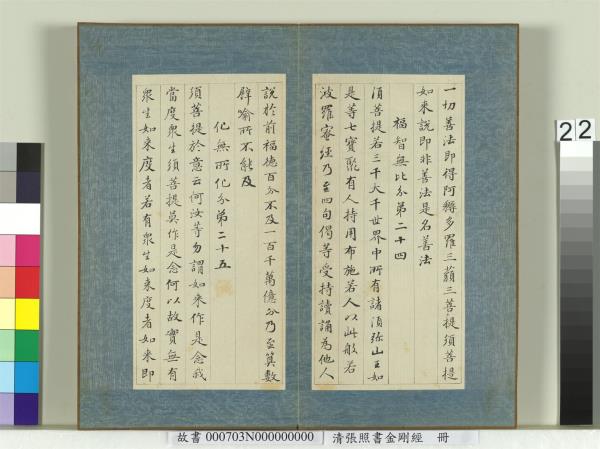 一切善法即得阿耨多羅三藐三菩提須菩提
如來說即非善法是名善法
福智無比分第二十四
須菩提若三千大千世界中所有諸須弥山王如
是等七寶聚有人持用布施若人以此般若
波羅蜜經乃至四句偈等受持讀誦為他人
說於前福德百分不及一百千萬億分乃至算數
譬喻所不能及
化無所化分第二十五
須菩提於意云何汝等勿謂如來作是念我
當度衆生須菩提莫作是念何以故實無有
衆生如來度者若有衆生如來度者如來即
22
故書 000703N000000000 清張照書金剛經 冊